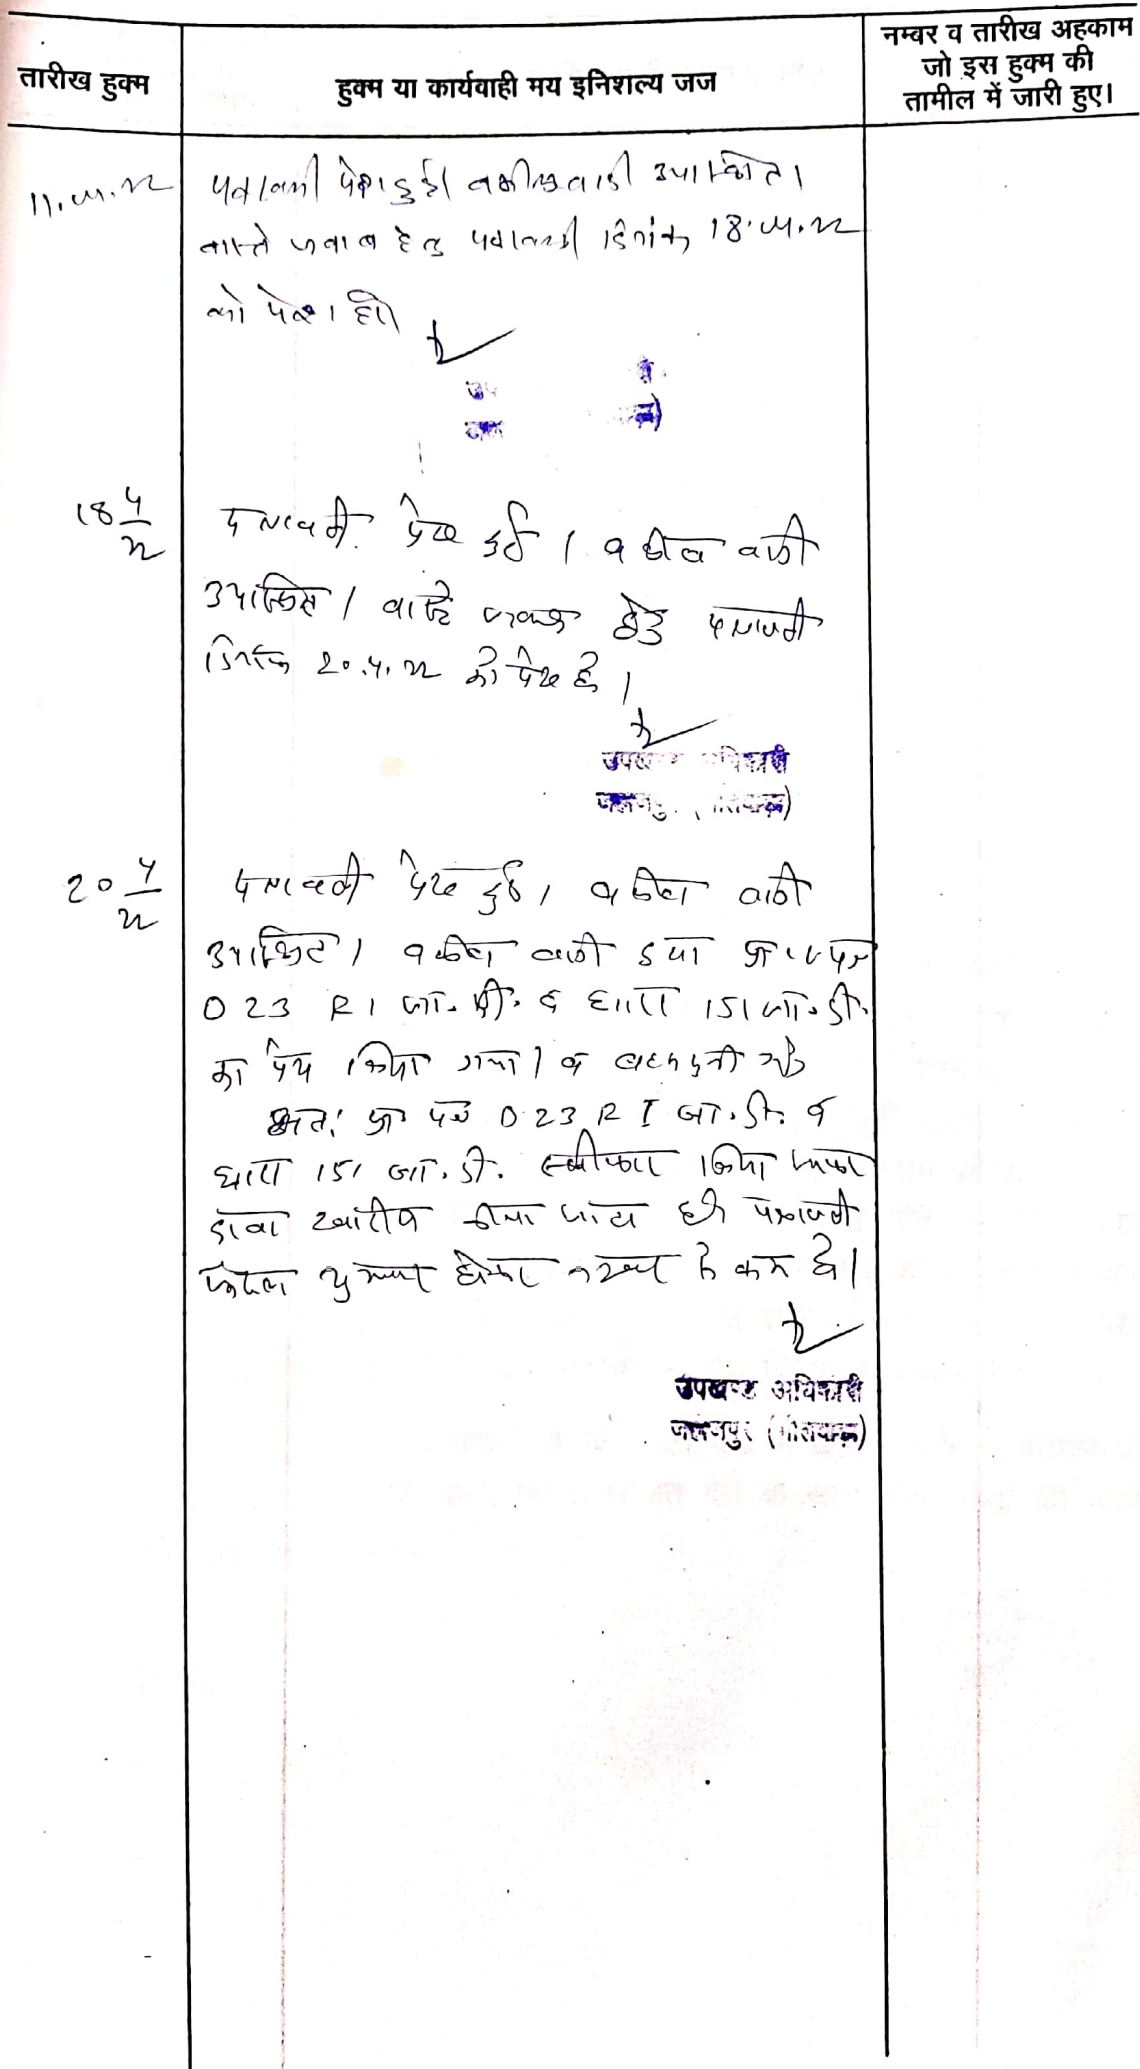 तारीख हुक्म
हुक्म या कार्यवाही मय इनिशल्य जज
नम्वर व तारीख अहकाम
जो इस हुक्म की
तामील में जारी हुए।
11.4.22
पत्रावली पेश हुई। वकील वादी उपस्थित।
वास्ते जवाब हेतु पत्रावली दिनांक 18.4.22
को पेश हो।
18 4/22
पत्रावली पेश हुई। वकील वादी
उपस्थित। वास्ते जवाब हेतु पत्रावली
दिनांक 20.4.22 को पेश हो।
उपखण्ड अधिकारी
20 4/22
पत्रावली पेश हुई। वकील वादी
उपस्थित। वकील वादी द्वारा प्रा. पत्र
O 23 R 1 जा. दी. व धारा 151 जा. दी.
का पेश किया गया। व बहस सुनी गई
अतः प्रा पत्र O 23 R I जा. दी. व
धारा 151 जा. दी. स्वीकार किया जाकर
दावा खारीज किया जाता है। पत्रावली
फैसल शुमार होकर नम्बर से कम हो।
उपखण्ड अधिकारी